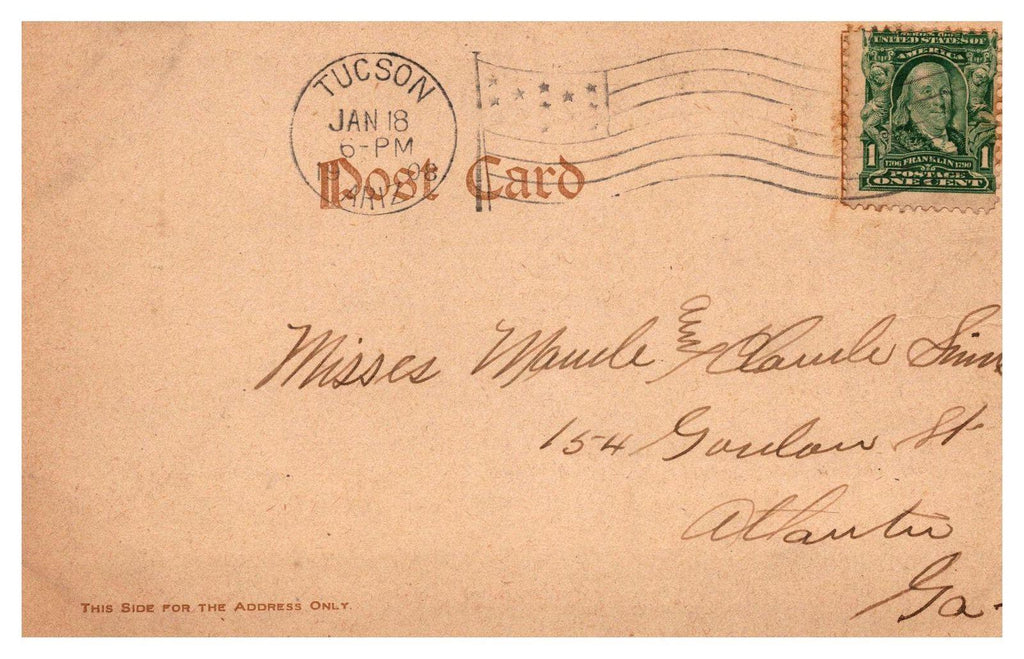 TUCSON
JAN 18
6-PM
19 08
ARIZ
Post Card
UNITED STATES OF
AMERICA
1 1706 FRANKLIN 1790 1
POSTAGE
ONE CENT
Misses Maude & Claude Sim
154 Gordon St.
Atlanta
Ga-
THIS SIDE FOR THE ADDRESS ONLY.